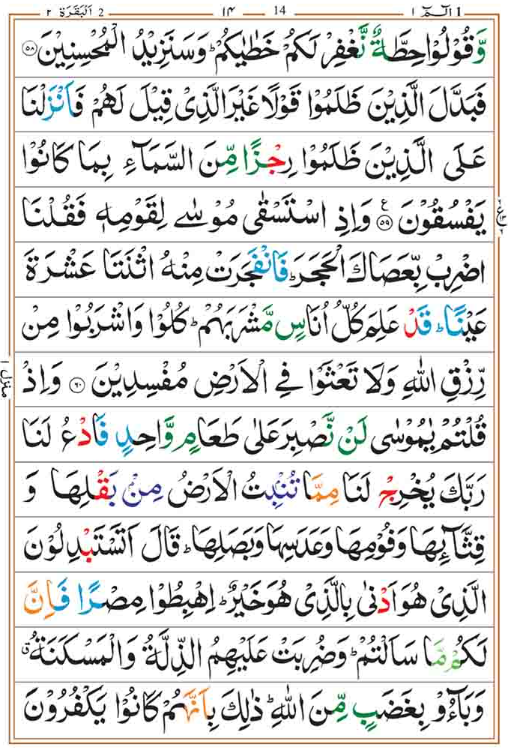 1 الٓمّٓ ١ 14 ١٤ 2 اَلْبَقَرَة ٢
وَّقُوۡلُوۡا حِطَّةٌ نَّغۡفِرۡ لَكُمۡ خَطٰيٰكُمۡ‌ؕ وَسَنَزِيۡدُ الۡمُحۡسِنِيۡنَ ﴿۵۸﴾
فَبَدَّلَ الَّذِيۡنَ ظَلَمُوۡا قَوۡلًا غَيۡرَ الَّذِىۡ قِيۡلَ لَهُمۡ فَاَنۡزَلۡنَا
عَلَى الَّذِيۡنَ ظَلَمُوۡا رِجۡزًا مِّنَ السَّمَآءِ بِمَا كَانُوۡا
يَفۡسُقُوۡنَ ﴿۵۹﴾ ع وَاِذِ اسۡتَسۡقٰى مُوۡسٰى لِقَوۡمِهٖ فَقُلۡنَا
اضۡرِبْ بِّعَصَاكَ الۡحَجَرَ‌ؕ فَانۡفَجَرَتۡ مِنۡهُ اثۡنَتَا عَشۡرَةَ
عَيۡنًا‌ؕ قَدۡ عَلِمَ كُلُّ اُنَاسٍ مَّشۡرَبَهُمۡ‌ؕ كُلُوۡا وَاشۡرَبُوۡا مِنۡ
رِّزۡقِ اللّٰهِ وَلَا تَعۡثَوۡا فِى الۡاَرۡضِ مُفۡسِدِيۡنَ ﴿۶۰﴾ وَاِذۡ
قُلۡتُمۡ يٰمُوۡسٰى لَنۡ نَّصۡبِرَ عَلٰى طَعَامٍ وَّاحِدٍ فَادۡعُ لَنَا
رَبَّكَ يُخۡرِجۡ لَنَا مِمَّا تُنۡۢبِتُ الۡاَرۡضُ مِنۡۢ بَقۡلِهَا وَ
قِثَّآئِهَا وَفُوۡمِهَا وَعَدَسِهَا وَبَصَلِهَا‌ؕ قَالَ اَتَسۡتَبۡدِلُوۡنَ
الَّذِىۡ هُوَ اَدۡنٰى بِالَّذِىۡ هُوَ خَيۡرٌ‌ؕ اِهۡبِطُوۡا مِصۡرًا فَاِنَّ
لَكُمۡ مَّا سَاَلۡتُمۡ‌ؕ وَضُرِبَتۡ عَلَيۡهِمُ الذِّلَّةُ وَالۡمَسۡكَنَةُ ۗ
وَبَآءُوۡ بِغَضَبٍ مِّنَ اللّٰهِ‌ؕ ذٰلِكَ بِاَنَّهُمۡ كَانُوۡا يَكۡفُرُوۡنَ
منزل ١